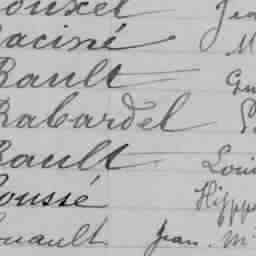 ouxel Jea
aciné M
Rault Gu
Rabardel
Rault Loui
oussé Hipp
ouault Jean M